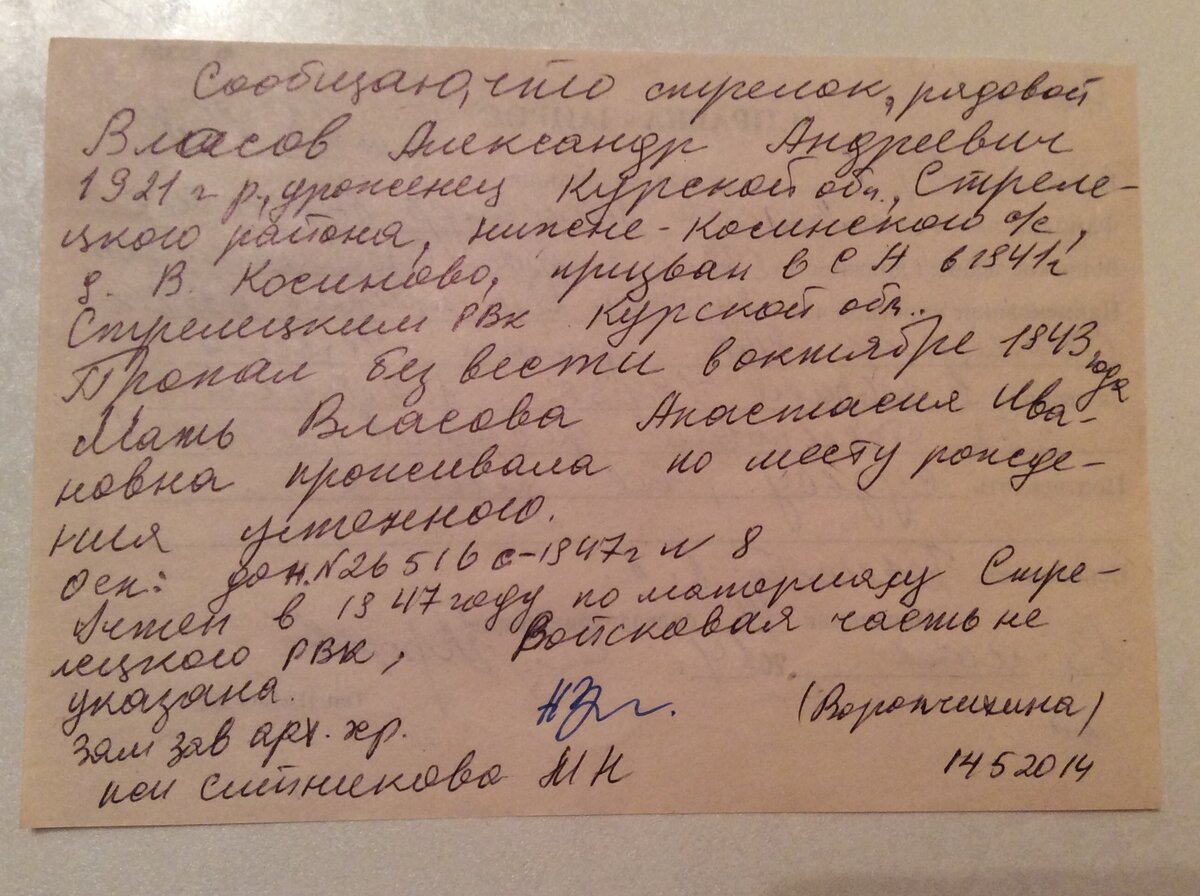 Сообщаю, что стрелок, рядовой
Власов Александр Андреевич
1921 г р., уроженец Курской обл., Стреле-
цкого района, нижне-Косинского с/с,
д. В. Косиново, призван в СА в 1941г
Стрелецким РВК Курской обл..
Пропал без вести в октябре 1943 года
Мать Власова Анастасия Ива-
новна проживала по месту рожде-
ния учтенного.
Осн: дон. N 26516 с-1947г N 8
Учтен в 1947 году по материалу Стре-
лецкого РВК, Войсковая часть не
указана.
Зам зав арх. хр.
исп Ситникова МН
(Воропчихина)
14 5 2014